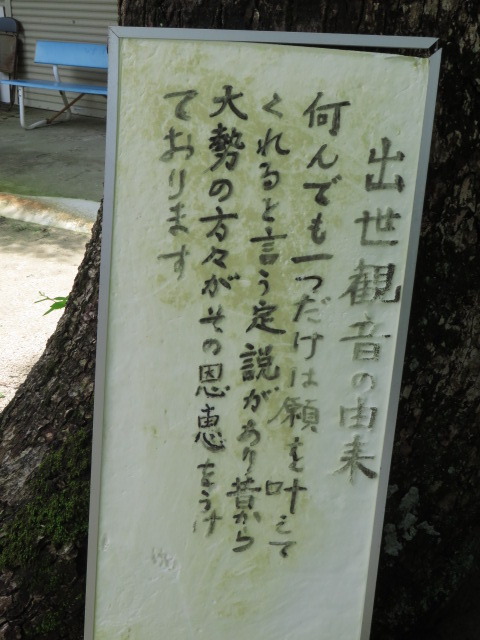 出世観音の由来
何んでも一つだけは願を叶えて
くれると言う定説があり昔から
大勢の方々がその恩恵をうけ
ております